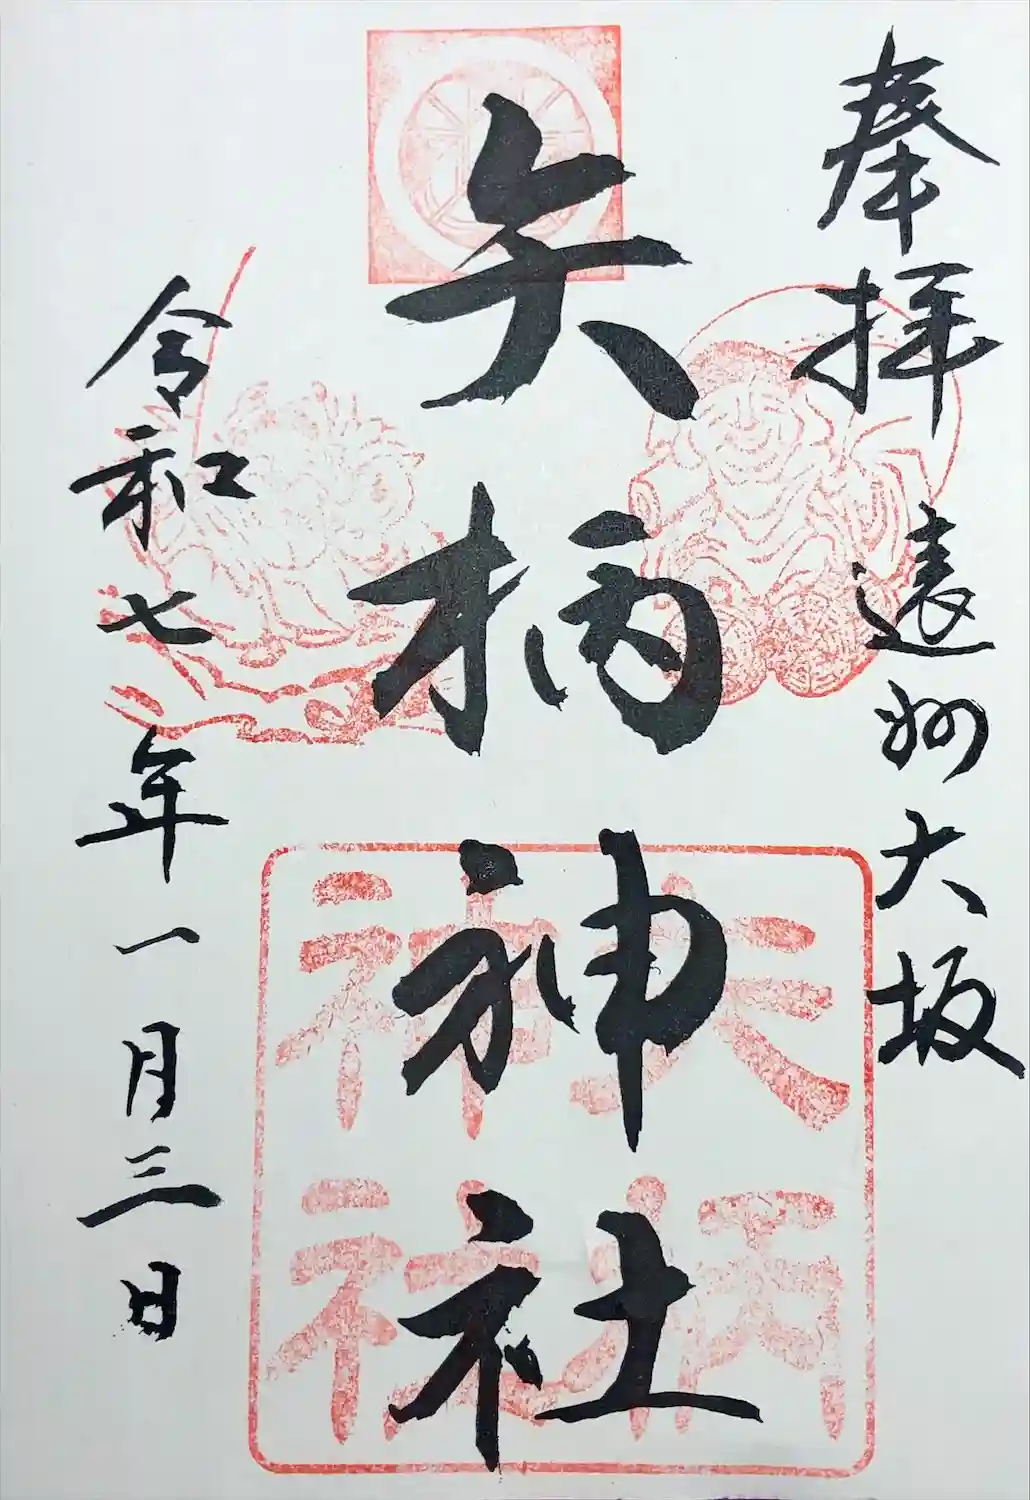 奉拝
遠州大坂
矢柄神社
矢柄
神社
令和七年一月三日